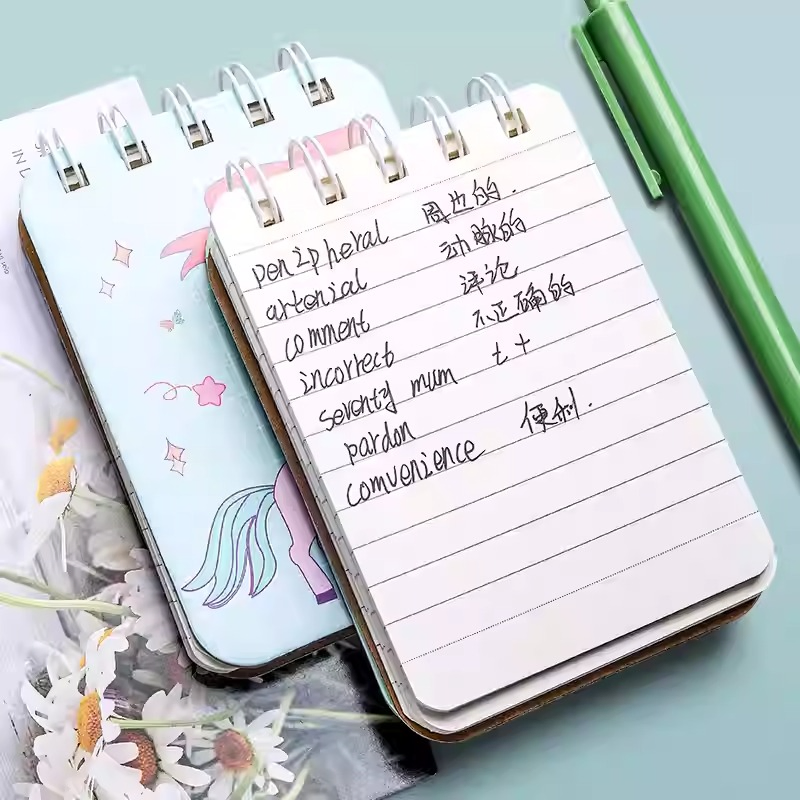 peripheral 周边的.
arterial 动脉的
comment 评论
incorrect 不正确的
seventy mum 七十
pardon
comvenience 便利.